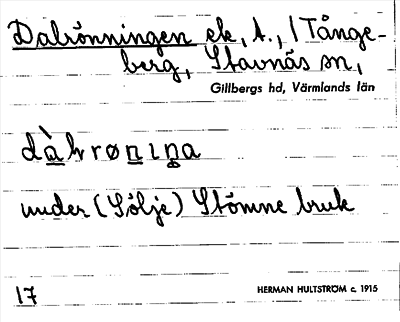 Dalrönningen ek, t., i Tånge-
berg, Stavnäs sn,
Gillbergs hd, Värmlands län
dàlrønıŋa
under (Sölje) Stömne bruk
17 HERMAN HULTSTRÖM c. 1915